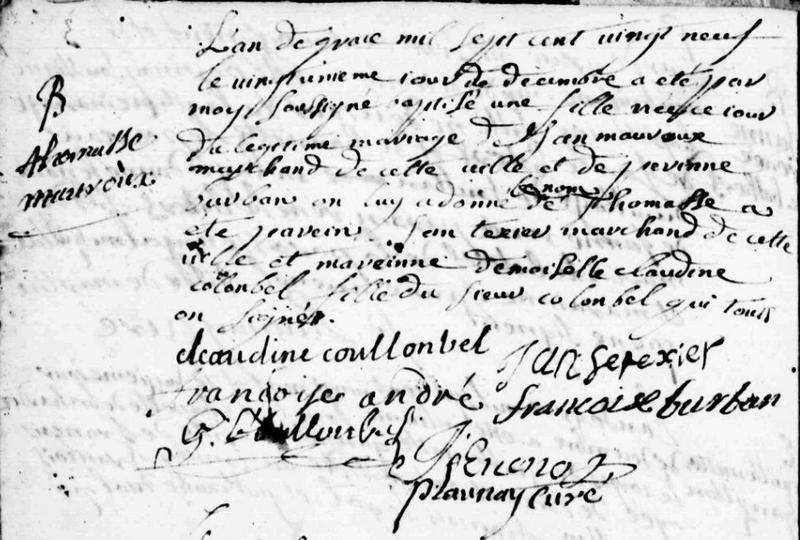 L'an de grace mil sept cent vingt neuf
le vingtunieme iour de decembre a eté par
moy soussigné baptisé une fille neé ce iour
du legitime mariage de Jean mauroux
marchand de cette ville et de perinne
burban on luy a donné le nom de Thomasse a
eté parein Jan texier marchand de cette
ville et mareinne demoiselle claudine
colonbel fille du sieur colonbel qui tous
on signés.
B
thomasse
mauroux
claudine coullonbel
Jan texier
françoise andré
francoise burban
G. Coullonbel
plaunay curé